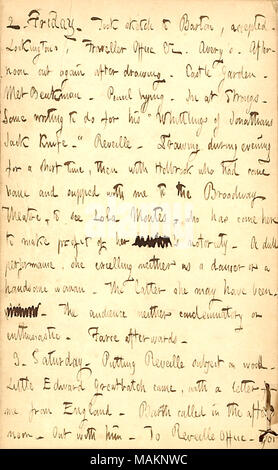 2. Friday. Took sketch to Barton, accepted.
Lockington's, Traveller Office &c. Avery's. After-
noon out again after drawing. Castle Garden.
Met Beutman. Pencil buying. In at Strongs.
Some writing to do for his "Whittlings of Jonathans
Jack Knife." Reveille. Drawing during evening
for a short time, then with Holbrook who had come
and supped with me to the Broadway
Theatre, to see Lola Montes, who has come here
to make profit of her notoriety. A dull
performance, she excelling neither as a dancer or a
handsome woman. The latter she may have been
The audience neither condemnatory or
enthusiastic. Farce afterwards.
3. Saturday. Putting Reveille subject on wood.
Little Edward Greatbatch came, with a letter
me from England. Barth called in the after
noon. Out with him. To Reveille Office. for
alamy
Image ID: MAKNWC
www.alamy.com